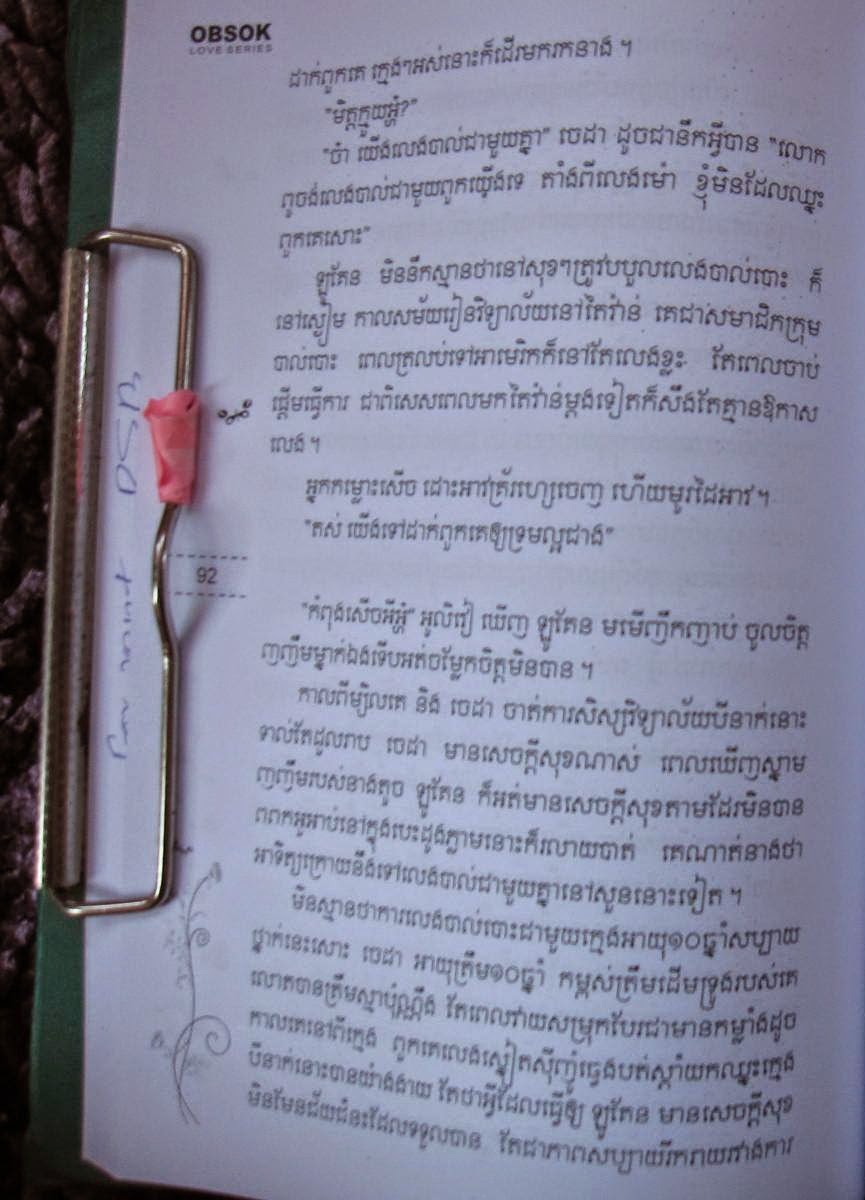 OBSOK
LOVE SERIES
ដាក់ពួកគេ ក្មេងៗអស់នោះក៏ដើរមករកនាង ។
"មិត្តក្មួយអ្ហំ?"
"ចា៎ យើងលេងបាល់ជាមួយគ្នា" ចេដា ដូចជានឹកអ្វីបាន "លោក
ពូចង់លេងបាល់ជាមួយពួកយើងទេ តាំងពីលេងម៉ោ ខ្ញុំមិនដែលឈ្នះ
ពួកគេសោះ"
ឡូគែន មិននឹកស្មានថានៅសុខៗត្រូវបបួលលេងបាល់បោះ ក៏
នៅស្ងៀម កាលសម័យរៀនវិទ្យាល័យនៅតៃវ៉ាន់ គេជាសមាជិកក្រុម
បាល់បោះ ពេលត្រលប់ទៅអាមេរិកក៏នៅតែលេងខ្លះ តែពេលចាប់
ផ្ដើមធ្វើការ ជាពិសេសពេលមកតៃវ៉ាន់ម្ដងទៀតក៏សឹងតែគ្មានឱកាស
លេង ។
អ្នកកម្លោះសើច ដោះអាវក្រៅហ្សេចេញ ហើយមូរដៃអាវ ។
"តស់ យើងទៅដាក់ពួកគេឲ្យទ្រមល្អជាង"
92
"កំពុងសើចអីអ្ហំ" អូលិវៀ ឃើញ ឡូគែន មមើញឹកញាប់ ចូលចិត្ត
ញញឹមម្នាក់ឯងទើបអត់ចម្លែកចិត្តមិនបាន ។
កាលពីម្សិលគេ និង ចេដា ចាត់ការសិស្សវិទ្យាល័យបីនាក់នោះ
ទាល់តែដួលរាប ចេដា មានសេចក្ដីសុខណាស់ ពេលឃើញស្នាម
ញញឹមរបស់នាងតូច ឡូគែន ក៏អត់មានសេចក្ដីសុខតាមដែរមិនបាន
ពពកអួអាប់នៅក្នុងបេះដូងភ្លាមនោះក៏រលាយបាត់ គេណាត់នាងថា
អាទិត្យក្រោយនឹងទៅលេងបាល់ជាមួយគ្នានៅសួននោះទៀត ។
មិនស្មានថាការលេងបាល់បោះជាមួយក្មេងអាយុ១០ឆ្នាំសប្បាយ
ថ្នាក់នេះសោះ ចេដា អាយុត្រឹម១០ឆ្នាំ កម្ពស់ត្រឹមដើមទ្រូងរបស់គេ
លោតបានត្រឹមស្មាប៉ុណ្ណឹង តែពេលវាយសម្រុកបែរជាមានកម្លាំងដូច
កាលគេនៅពីក្មេង ពួកគេលេងស្នៀតស៊ីញ៉ូឆ្វេងបត់ស្ដាំយកឈ្នះក្មេង
បីនាក់នោះបានយ៉ាងងាយ តែថាអ្វីដែលធ្វើឲ្យ ឡូគែន មានសេចក្ដីសុខ
មិនមែនជ័យជំនះដែលទទួលបាន តែជាភាពសប្បាយរីករាយរវាងការ